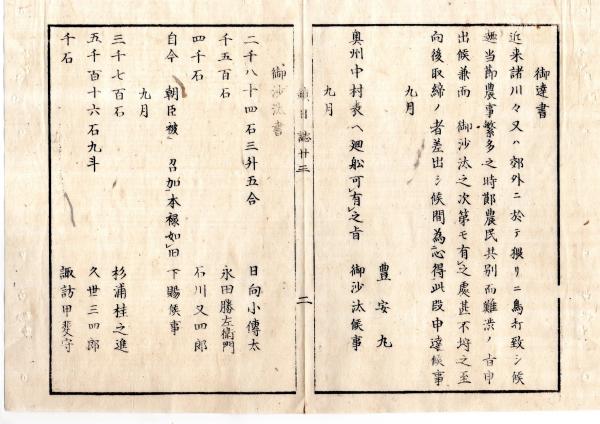 御達書
近来諸川々又ハ郊外ニ於テ猥リニ鳥打致シ候
趣当節農事繁多之時鄭農民共別而難渋ノ旨申
出候兼而 御沙汰之次第モ有之處甚不埒之至
向後取締ノ者差出シ候間為心得此段申達候事
九月
豊安九
奥州中村表ヘ廻舩可有之旨 御沙汰候事
九月
日誌廿三
二
御沙汰書
二千八十四石三升五合 日向小傳太
千五百石 永田勝左衛門
四千石 石川又四郎
自今 朝臣被 召加本禄如旧下賜候事
九月
三千七百石 杉浦桂之進
五千百十六石九斗 久世三四郎
千石 諏訪甲斐守